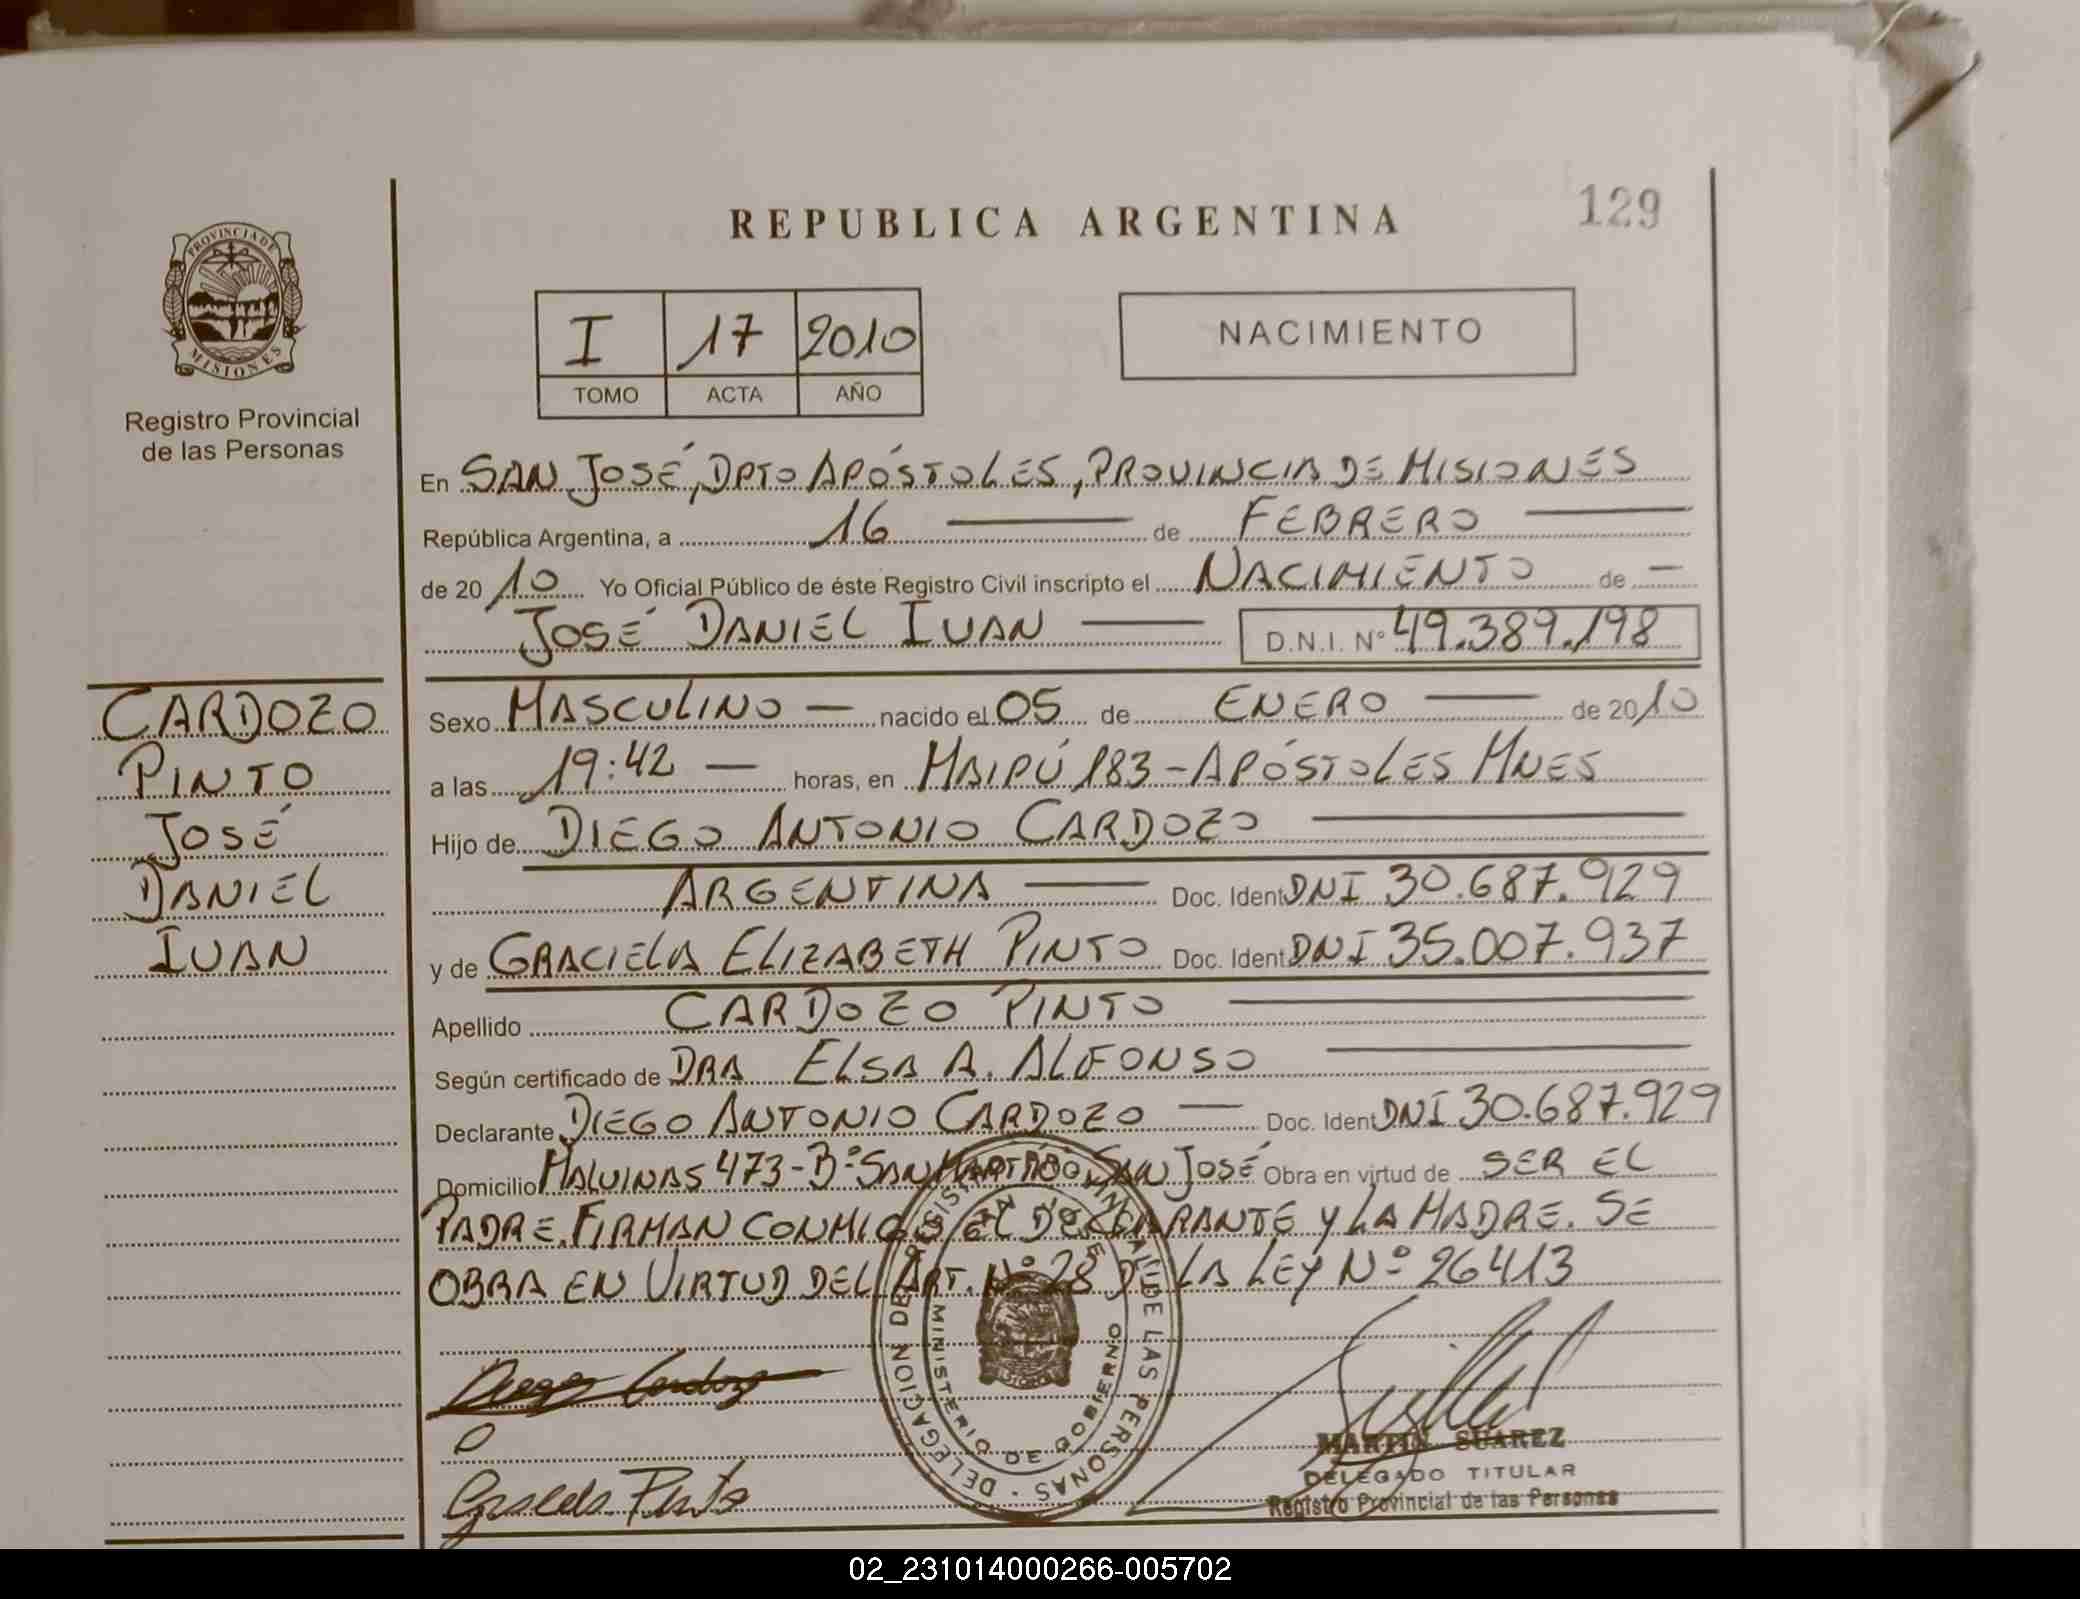 REPUBLICA ARGENTINA
129
PROVINCIA DE
MISIONES
Registro Provincial
de las Personas
I 17 2010
TOMO ACTA AÑO
NACIMIENTO
En SAN JOSÉ, DPTO APÓSTOLES, PROVINCIA DE MISIONES
República Argentina, a 16 de FEBRERO
de 2010 Yo Oficial Público de éste Registro Civil inscripto el NACIMIENTO de —
JOSÉ DANIEL IVAN — D.N.I. Nº 49.389.198
CARDOZO
PINTO
JOSÉ
DANIEL
IVAN
Sexo MASCULINO — nacido el 05 de ENERO — de 2010
a las 19:42 — horas, en MAIPÚ 183 - APÓSTOLES MNES
Hijo de DIEGO ANTONIO CARDOZO —
ARGENTINA — Doc. Ident DNI 30.687.929
y de GRACIELA ELIZABETH PINTO Doc. Ident DNI 35.007.937
Apellido CARDOZO PINTO —
Según certificado de DRA ELSA A. ALFONSO —
Declarante DIEGO ANTONIO CARDOZO — Doc. Ident DNI 30.687.929
Domicilio MALVINAS 473 - Bº SAN MARTÍN SAN JOSÉ Obra en virtud de SER EL
PADRE. FIRMAN CONMIGO EL DECLARANTE Y LA MADRE. SE
OBRA EN VIRTUD DEL ART. Nº 28 DE LA LEY Nº 26413
DELEGACION DEL REGISTRO PROVINCIAL DE LAS PERSONAS
SAN JOSE
MINISTERIO DE GOBIERNO
Diego Cardozo
Graciela Pinto
MARTIN SUAREZ
DELEGADO TITULAR
Registro Provincial de las Personas
02_231014000266-005702